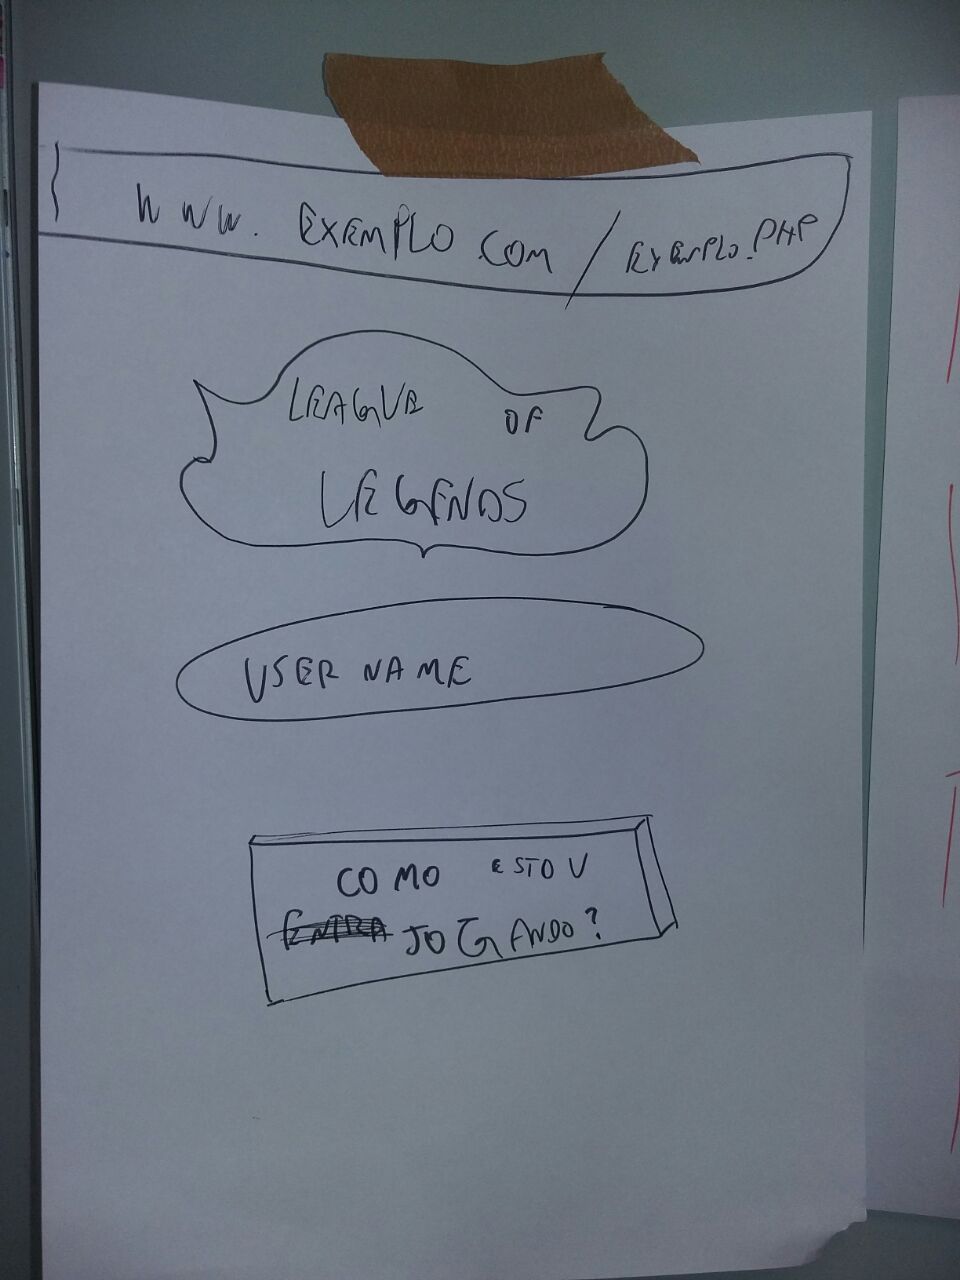 WWW. EXEMPLO.COM / EXEMPLO.PHP
LEAGUE OF
LEGENDS
USER NAME
COMO ESTOU
ENTRA JOGANDO?